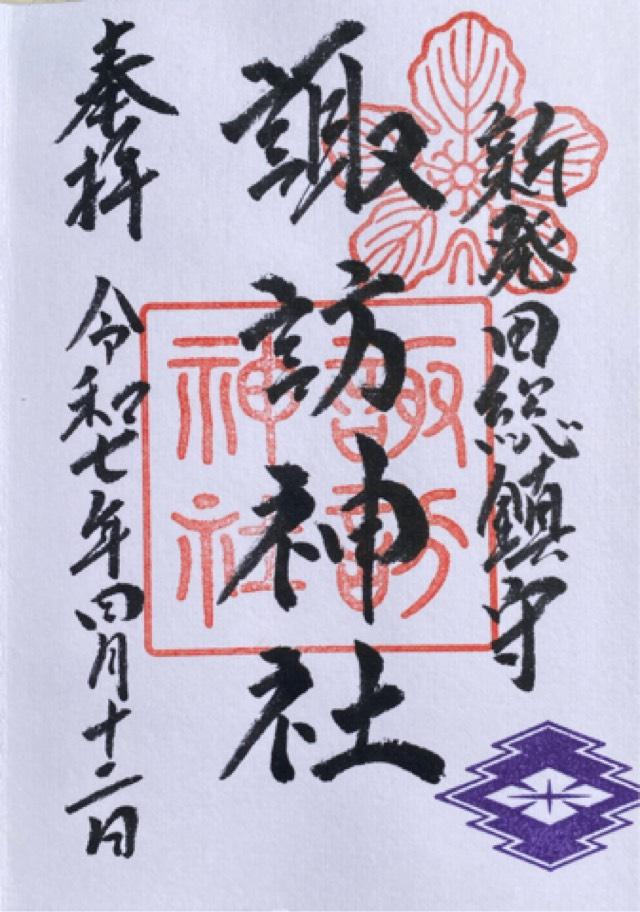 新発田総鎮守
諏訪神社
諏訪
神社
奉拝 令和七年四月十二日